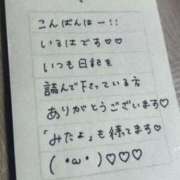 こんばんはー!!
いるはです♡♡
いつも日記を
読んで下さっている方
ありがとうございます♡
「みたよ」も様てます♡
( *ω* )♡♡♡